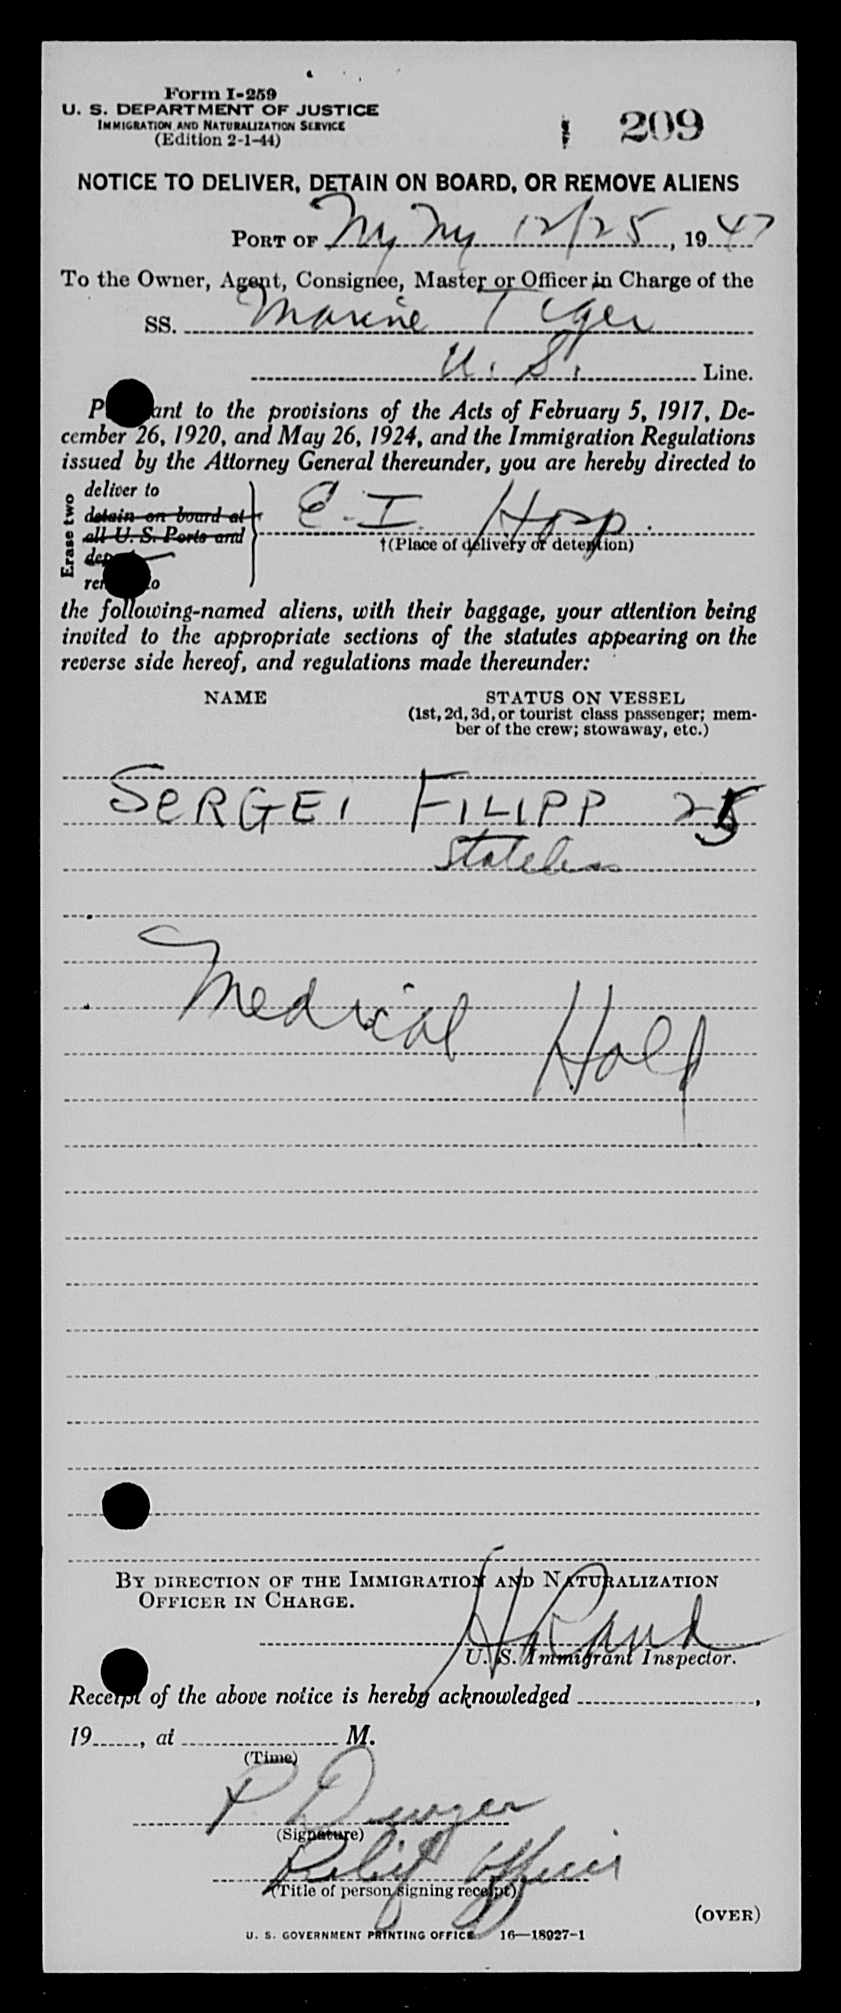 Form I-259
U. S. DEPARTMENT OF JUSTICE
IMMIGRATION AND NATURALIZATION SERVICE
(Edition 2-1-44)
209
NOTICE TO DELIVER, DETAIN ON BOARD, OR REMOVE ALIENS
PORT OF Ny Ny 12/25, 1947
To the Owner, Agent, Consignee, Master or Officer in Charge of the
SS. Marine Tiger
U. S. Line.
P ant to the provisions of the Acts of February 5, 1917, De-
cember 26, 1920, and May 26, 1924, and the Immigration Regulations
issued by the Attorney General thereunder, you are hereby directed to
Erase two
deliver to
detain on board at
all U. S. Ports and
dep
re o
E. I. Hosp.
†(Place of delivery or detention)
the following-named aliens, with their baggage, your attention being
invited to the appropriate sections of the statutes appearing on the
reverse side hereof, and regulations made thereunder:
NAME STATUS ON VESSEL
(1st, 2d, 3d, or tourist class passenger; mem-
ber of the crew; stowaway, etc.)
SERGEI FILIPP 25
Stateless
Medical Hold
BY DIRECTION OF THE IMMIGRATION AND NATURALIZATION
OFFICER IN CHARGE.
H Rand
U. S. Immigrant Inspector.
Receipt of the above notice is hereby acknowledged ,
19 , at M.
(Time)
P Dwyer
(Signature)
Relief Officer
(Title of person signing receipt)
(OVER)
U. S. GOVERNMENT PRINTING OFFICE 16—18927-1